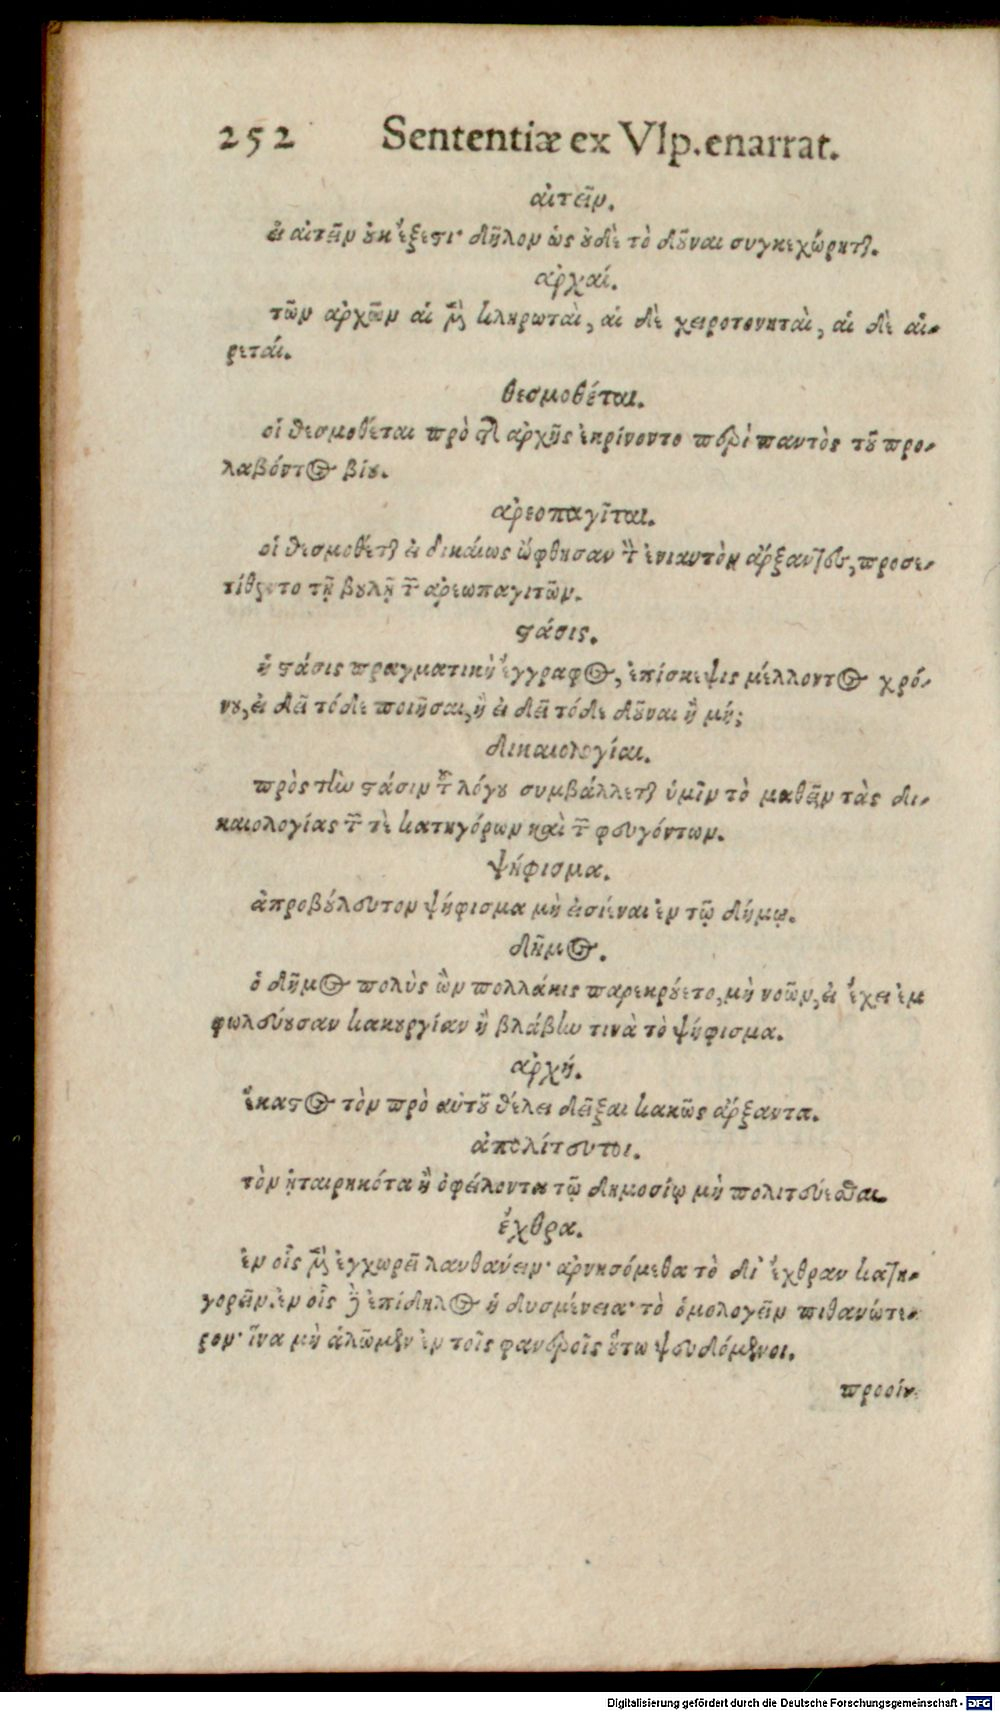 252 Sententiæ ex Vlp. enarrat.
αἰτεῖν.
εἰ αἰτεῖν οὐκ ἔξεστι· δῆλον ὡς οὐδὲ τὸ δοῦναι συγκεχώρηται.
ἀρχαί.
τῶν ἀρχῶν αἱ μὲν κληρωταὶ, αἱ δὲ χειροτονηταὶ, αἱ δὲ αἱ-
ρεταί.
θεσμοθέται.
οἱ θεσμοθέται πρὸ τῆς ἀρχῆς ἐκρίνοντο περὶ παντὸς τοῦ προ-
λαβόντος βίου.
ἀρεοπαγῖται.
οἱ θεσμοθέται εἰ δικαίως ὤφθησαν τὸν ἐνιαυτὸν ἄρξαντες, προσε-
τίθεντο τῇ βουλῇ τῶν ἀρεωπαγιτῶν.
στάσις.
ἡ στάσις πραγματικὴ ἔγγραφος, ἐπίσκεψις μέλλοντος χρό-
νου, εἰ δεῖ τόδε ποιῆσαι, ἢ εἰ δεῖ τόδε δοῦναι ἢ μή;
δικαιολογίαι.
πρὸς τὴν στάσιν τοῦ λόγου συμβάλλεται ὑμῖν τὸ μαθεῖν τὰς δι-
καιολογίας τῶν τὲ κατηγόρων καὶ τῶν φευγόντων.
ψήφισμα.
ἀπροβούλευτον ψήφισμα μὴ εἰσιέναι ἐν τῷ δήμῳ.
δῆμος.
ὁ δῆμος πολὺς ὢν πολλάκις παρεκρούετο, μὴ νοῶν, εἰ ἔχει ἐμ
φωλεύουσαν κακουργίαν ἢ βλάβην τινὰ τὸ ψήφισμα.
ἀρχή.
ἕκαστος τὸν πρὸ αὐτοῦ θέλει δεῖξαι κακῶς ἄρξαντα.
ἀπολίτευτοι.
τὸν ἡταιρηκότα ἢ ὀφείλοντα τῷ δημοσίῳ μὴ πολιτεύεσθαι
ἔχθρα.
ἐν οἷς μὲν ἐγχωρεῖ λανθάνειν· ἀρνησόμεθα τὸ δι' ἔχθραν κατη-
γορεῖν. ἐν οἷς δὲ ἐπίδηλος ἡ δυσμένεια· τὸ ὁμολογεῖν πιθανώτε-
ρον· ἵνα μὴ ἁλῶμεν ἐν τοῖς φανεροῖς οὕτω ψευδόμενοι.
προοίν
Digitalisierung gefördert durch die Deutsche Forschungsgemeinschaft - DFG